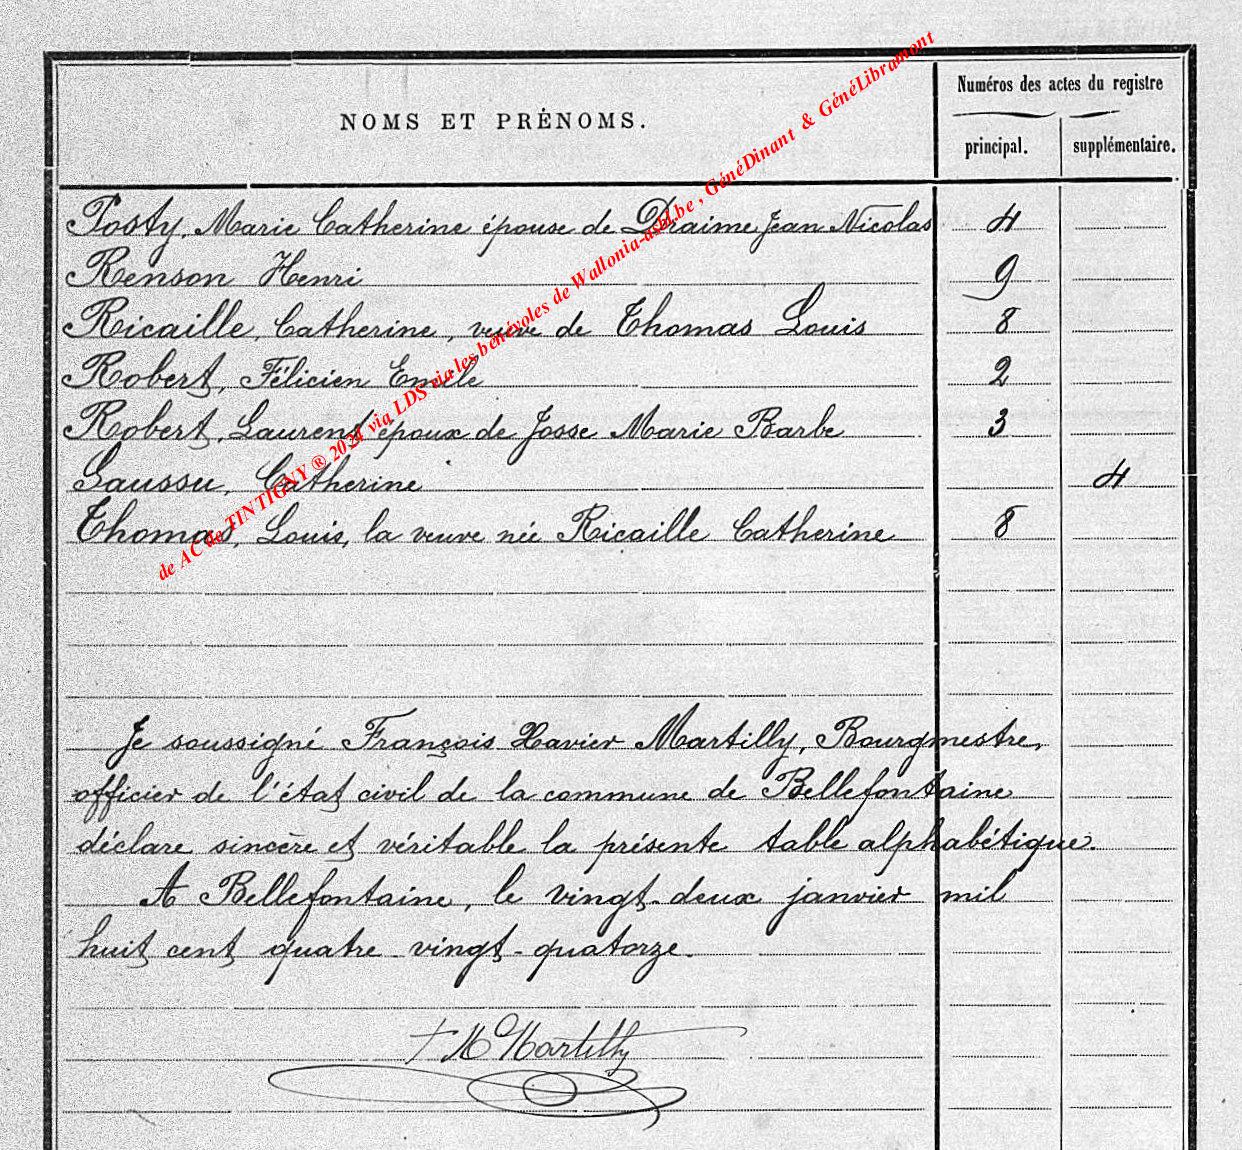 Numéros des actes du registre
NOMS ET PRÉNOMS.
principal. supplémentaire.
Posty, Marie Catherine épouse de Draime Jean Nicolas 4
Renson Henri 9
Ricaille, Catherine, veuve de Thomas Louis 8
Robert, Félicien Emile 2
Robert, Laurent époux de Josse Marie Barbe 3
Saussu, Catherine 4
Thomas, Louis, la veuve née Ricaille Catherine 8
de AC de TINTIGNY ® 2024 via LDS via les bénévoles de Wallonia-asbl.be, GénéDinant & GénéLibramont
Je soussigné François Xavier Martilly, Bourgmestre,
officier de l'état civil de la commune de Bellefontaine
déclare sincère et véritable la présente table alphabétique.
A Bellefontaine, le vingt-deux janvier mil
huit cent quatre vingt-quatorze.
Martilly